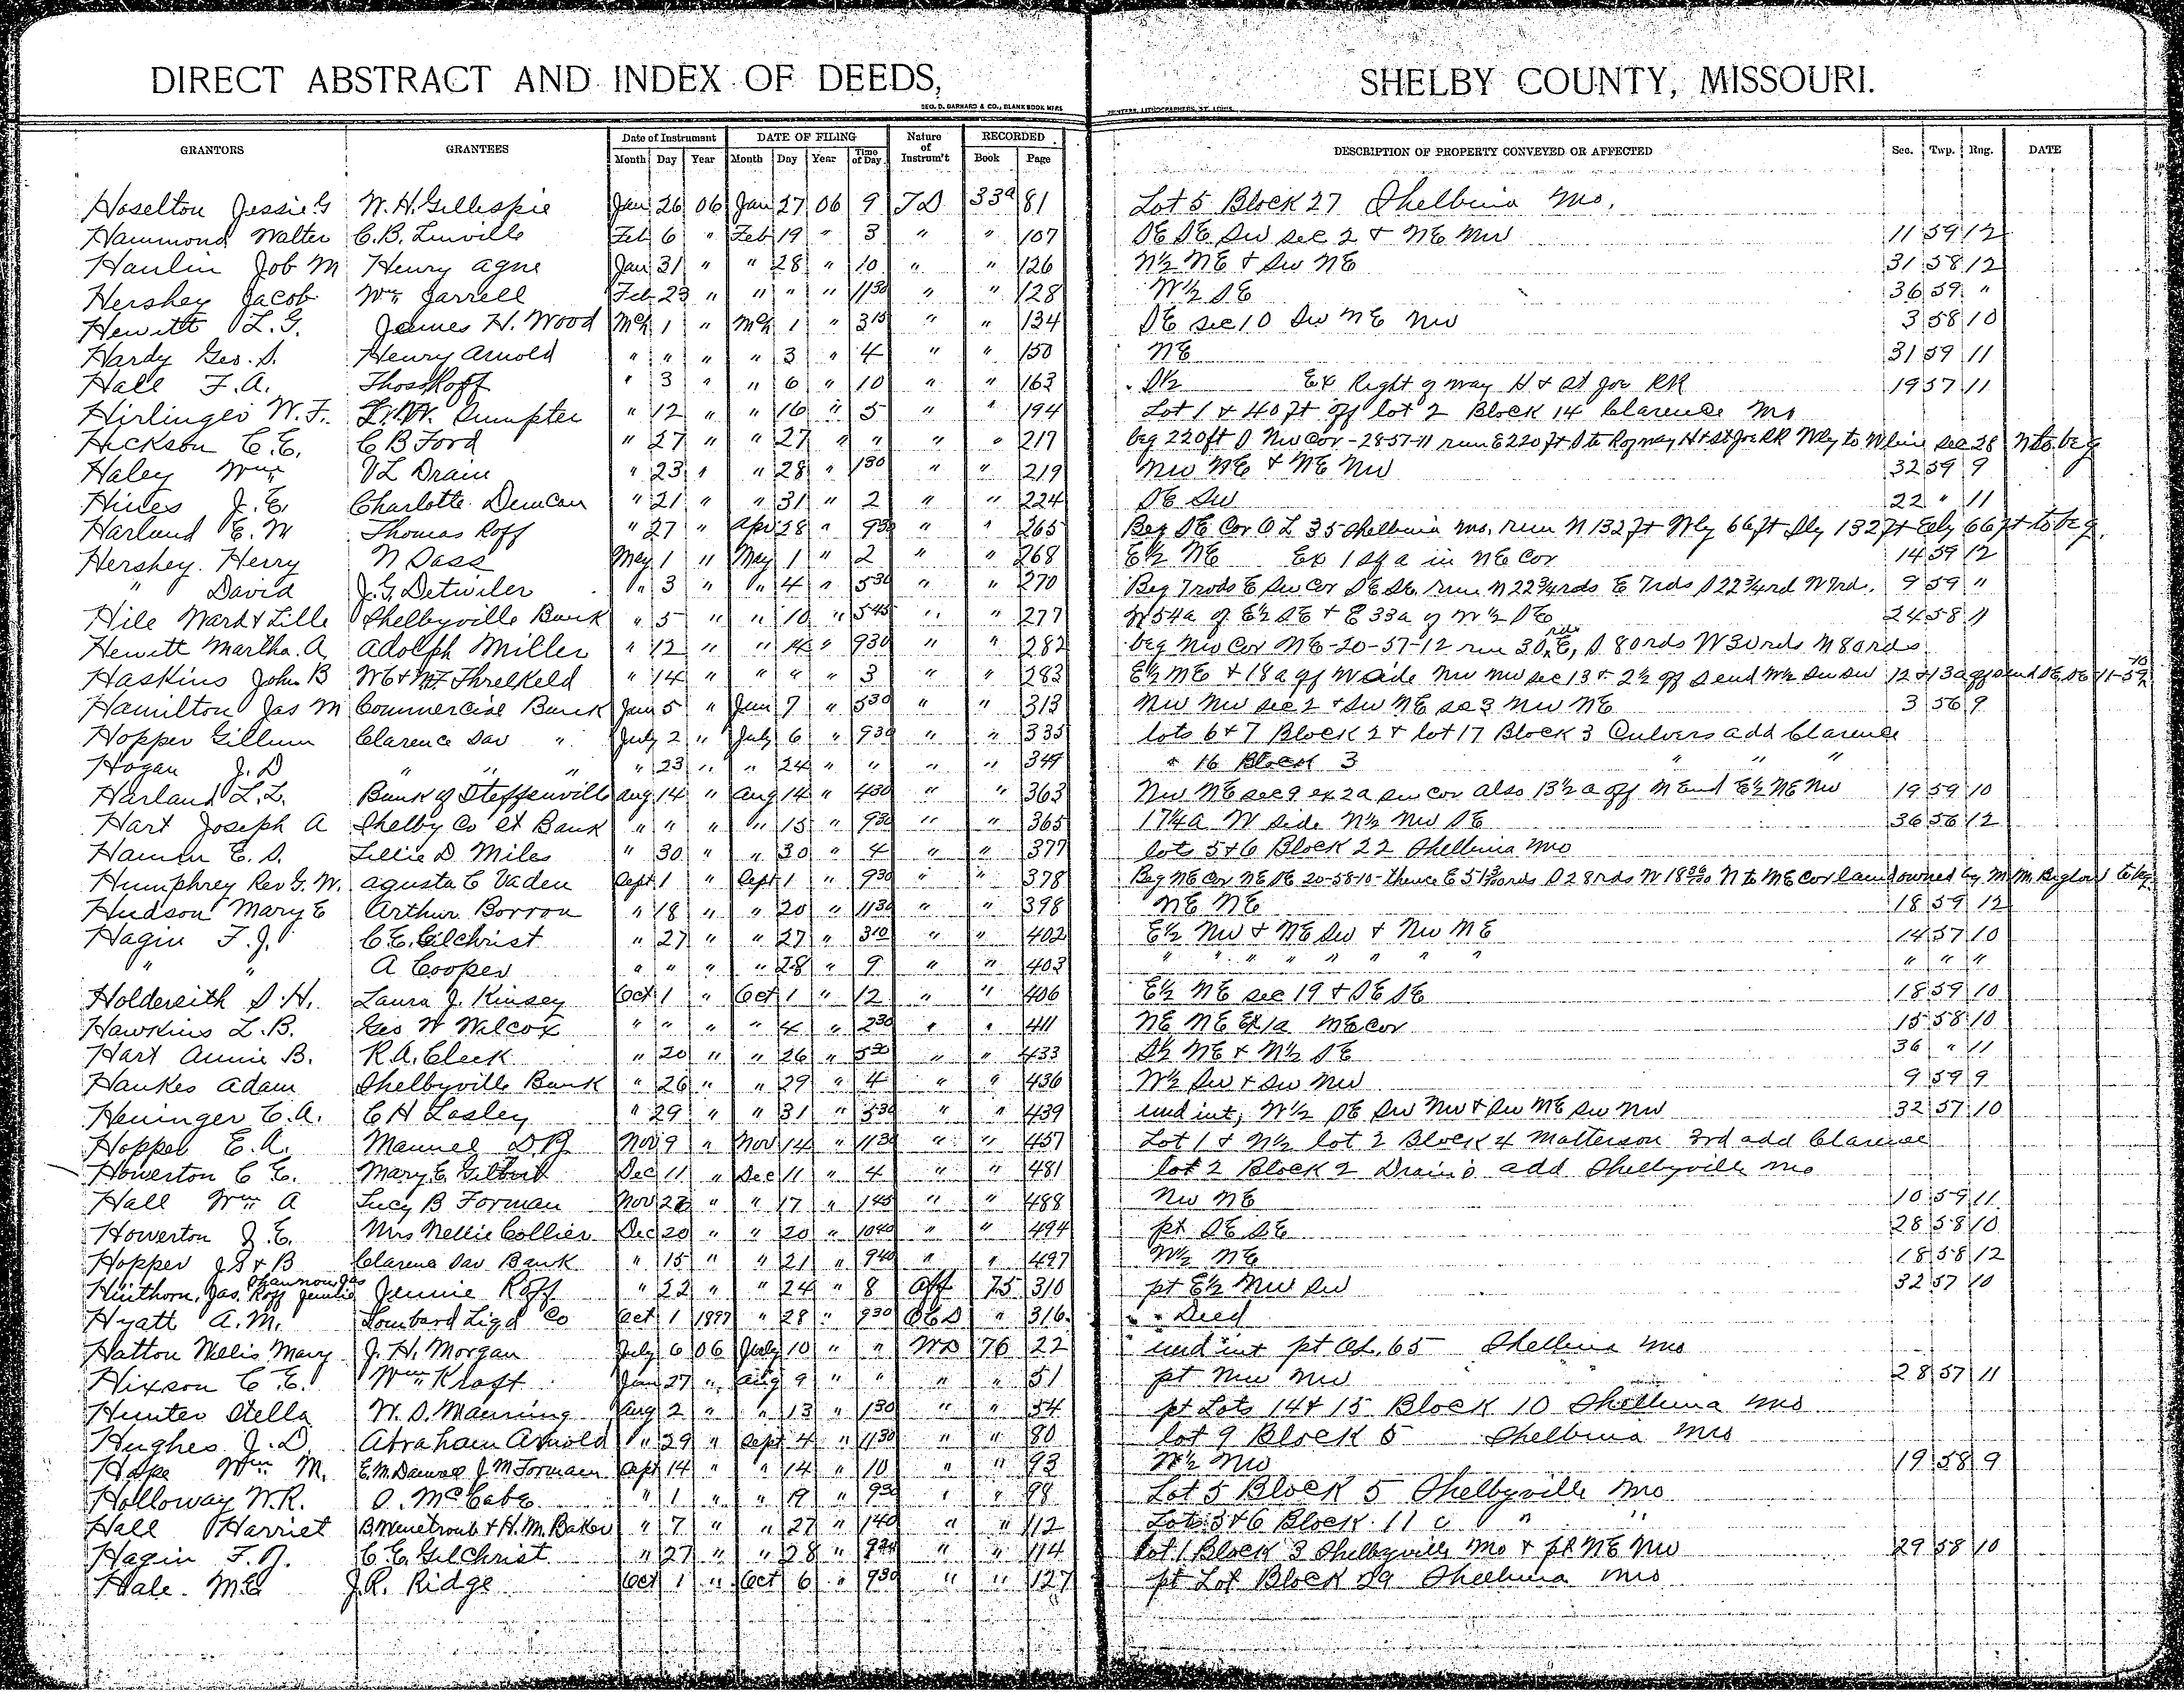 DIRECT ABSTRACT AND INDEX OF DEEDS, SHELBY COUNTY, MISSOURI.
GEO. D. BARNARD & CO., BLANK BOOK MFRS PRINTERS, LITHOGRAPHERS, ST. LOUIS.
GRANTORS GRANTEES Date of Instrument DATE OF FILING Nature of Instrum't RECORDED DESCRIPTION OF PROPERTY CONVEYED OR AFFECTED Sec. Twp. Rng. DATE
Month Day Year Month Day Year Time of Day Book Page
Hoselton Jessie G W. H. Gillespie Jan 26 06 Jan 27 06 9 TD 33a 81 Lot 5 Block 27 Shelbina Mo.
Hammond Walter C. B. Linville Feb 6 " Feb 19 " 3 " " 107 SE SE SW sec 2 & NE NW 11 59 12
Hanlin Job M Henry Agne Jan 31 " " 28 " 10 " " 126 N½ NE & SW NE 31 58 12
Hershey Jacob Wm Jarrell Feb 23 " " " " 1130 " " 128 W½ SE 36 59 "
Hewitt L. G. James H. Wood Mch 1 " Mch 1 " 315 " " 134 SE sec 10 SW NE NW 3 58 10
Hardy Geo. S. Henry Arnold " " " " 3 " 4 " " 150 NE 31 59 11
Hall F. A. Thos Roff " 3 " " 6 " 10 " " 163 S½ Ex Right of way H & St Joe RR 19 57 11
Hirlinger W. F. Sumpter " 12 " " 16 " 5 " " 194 Lot 1 & 40 ft off lot 2 Block 14 Clarence Mo
Hickson C. E. C B Ford " 27 " " 27 " " " " 217 beg 220 ft S NW Cor - 28-57-11 run E 220 ft S to R of way H & St Joe RR Wly to W line sec 28 N to beg
Haley Wm V L Drain " 23 " " 28 " 130 " " 219 NW NE & NE NW 32 59 9
Hines J. E. Charlotte Duncan " 21 " " 31 " 2 " " 224 SE SW 22 " 11
Harland E. M Thomas Roff " 27 " Apr 28 " 930 " " 265 Beg SE Cor O L 35 Shelbina Mo. run N 132 ft Wly 66 ft Sly 132 ft Ely 66 ft to beg.
Hershey Henry N Dass May 1 " May 1 " 2 " " 268 E½ NE Ex 1 sq a in NE Cor 14 59 12
" David J. G. Detwiler " 3 " " 4 " 530 " " 270 Beg 7 rods E SW Cor SE SE run N 22¾ rds E 7 rds S 22¾ rd W 7 rd. 9 59 "
Hile Mark & Lille Shelbyville Bank " 5 " " 10 " 545 " " 277 W 54a of E½ SE & E 33a of W½ SE 24 58 11
Hewitt Martha. A Adolph Miller " 12 " " 14 " 930 " " 282 beg NW Cor NE-20-57-12 run 30 rds E, S 80 rds W 30 rds N 80 rds
Haskins John B W E & Threlkeld " 14 " " " " 3 " " 283 E½ NE & 18 a off W side NW NW sec 13 & 2½ off S end W½ SW SW 12 & 13 a off S end SE SE 11-59-10
Hamilton Jas M Commercial Bank Jan 5 " Jun 7 " 530 " " 313 NW NW sec 2 & SW NE sec 3 NW NE 3 56 9
Hopper Gillum Clarence Sav " July 2 " July 6 " 930 " " 335 lots 6 & 7 Block 2 & lot 17 Block 3 Culvers add Clarence
Hogan J. D " " " " 23 " " 24 " " " " 349 " 16 Block 3 " " "
Harland L. L. Bank of Steffenville Aug 14 " Aug 14 " 430 " " 363 NW NE sec 9 ex 2a SW cor also 13½ a off N End E½ NE NW 19 59 10
Hart Joseph A Shelby Co Ex Bank " " " " 15 " 930 " " 365 17¼a W side N½ NW SE 36 56 12
Hamm E. S. Lillie D Miles " 30 " " 30 " 4 " " 377 lots 5 & 6 Block 22 Shelbina Mo
Humphrey Rev G. W. Agusta C Vaden Sept 1 " Sept 1 " 930 " " 378 Beg NE Cor NE SE 20-58-10-thence E rds S 28 rds W 18 N to NE Cor land owned by M M Biglow to beg
Hudson Mary E Arthur Borron " 18 " " 20 " 1130 " " 398 NE NE 18 59 12
Hagin F. J. C. E. Gilchrist " 27 " " 27 " 310 " " 402 E½ NW & NE SW & NW NE 14 57 10
" " A Cooper " " " " 28 " 9 " " 403 " " " " " " " " " " "
Holdersith S. H. Laura J. Kinsey Oct 1 " Oct 1 " 12 " " 406 E½ NE sec 19 & SE SE 18 59 10
Hawkins L. B. Geo W Wilcox " " " " 4 " 230 " " 411 NE NE Ex 1a NE Cor 15 58 10
Hart Annie B. R. A. Cleek " 20 " " 26 " 530 " " 433 S½ NE & N½ SE 36 " 11
Hankes Adam Shelbyville Bank " 26 " " 29 " 4 " " 436 W½ SW & SW NW 9 59 9
Heninger C. A. C H Lasley " 29 " " 31 " 530 " " 439 und int, W½ SE SW NW & SW NE SW NW 32 57 10
Hopper E. A. Manuel D. B. Nov 9 " Nov 14 " 1130 " " 457 Lot 1 & N½ lot 2 Block 4 Matterson 3rd add Clarence
Howerton C E. Mary E. Gilbert Dec 11 " Dec 11 " 4 " " 481 lot 2 Block 2 Drain's add Shelbyville Mo
Hall Wm A Lucy B Forman Nov 27 " " 17 " 145 " " 488 NW NE 10 59 11
Howerton J. E. Mrs Nellie Collier Dec 20 " " 20 " 1040 " " 494 pt SE SE 28 58 10
Hopper J S & B Clarence Sav Bank " 15 " " 21 " 940 " " 497 W½ NE 18 58 12
Hinthorn, Jas. Shannon Jas Roff Jennie Jennie Roff " 22 " " 24 " 8 Aff 75 310 pt E½ NW SW 32 57 10
Hyatt A. M. Lombard Liqd Co Oct 1 1897 " 28 " 930 QCD " 316 " Deed
Hatton Nellis Mary J. H. Morgan July 6 06 July 10 " " WD 76 22 und int pt OL. 65 Shelbina Mo
Hixson C. E. Wm Kraft Jan 27 " Aug 9 " " " " 51 pt NW NW 28 57 11
Hunter Stella W. S. Manning Aug 2 " " 13 " 130 " " 54 pt Lots 14 & 15 Block 10 Shelbina Mo
Hughes J. D. Abraham Arnold " 29 " Sept 4 " 1130 " " 80 lot 9 Block 5 Shelbina Mo
Hope Wm M. E. M. J M Forman Sept 14 " " 14 " 10 " " 93 W½ NW 19 58 9
Holloway W. R. O. McCabe " 1 " " 19 " 930 " " 98 Lot 5 Block 5 Shelbyville Mo
Hall Harriet B. Winetroub & H. M. Baker " 7 " " 27 " 140 " " 112 Lots 5 & 6 Block 11 " "
Hagin F. J. C. E. Gilchrist " 27 " " 28 " 930 " " 114 lot 1 Block 3 Shelbyville Mo & pt NE NW 29 58 10
Hale. M E J. R. Ridge Oct 1 " Oct 6 " 930 " " 127 pt Lot Block 29 Shelbina Mo